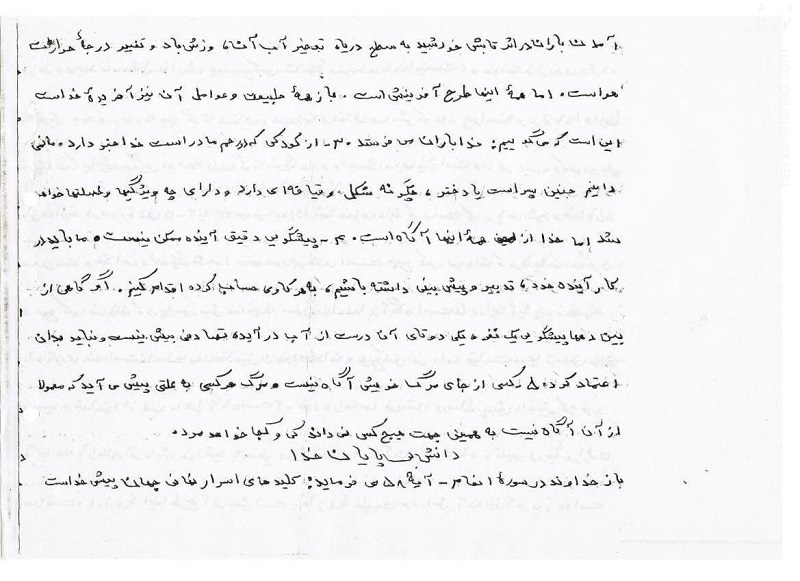 آمدن باران در اثر تابش خورشید به سطح دریا، تبخیر آب آن، وزش باد و تغییر درجهٔ حرارت
هواست، اما همهٔ اینها طرح آفرینش است. باز همهٔ طبیعت و عوامل آن نیز آفریدهٔ خداست
این است که می‌گوییم: خدا باران می فرستد ۳۰- از کودکی که در رحم مادر است خدا خبر دارد، ما نمی
دانیم جنین پسر است یا دختر، چگونه شکل و قیافه‌ای دارد و دارای چه ویژگیها و خصلتها خواهد
شد اما خدا از همهٔ اینها آگاه است. ۴- پیشگویی دقیق آینده ممکن نیست و ما باید در
کار آینده خود، تدبیر و پیش بینی داشته باشیم، به هر کاری حساب کرده اقدام کنیم. اگر گاهی از
بین دهها پیشگویی یک نفر، یکی دو تای آن درست از آب درآید، تصادفی بیش نیست و نباید بدان
اعتماد کرد ۵- کسی از جای مرگ خویش آگاه نیست و مرگ هر کسی به علتی پیش می آید که معمولا
از آن آگاه نیست به همین جهت هیچ کس نمی داند کی و کجا خواهد مرد.
دانش بی پایان خدا
باز خداوند در سورهٔ انعام - آیهٔ ۵۸ می فرماید: کلیدهای اسرار نهان جهان پیش خداست